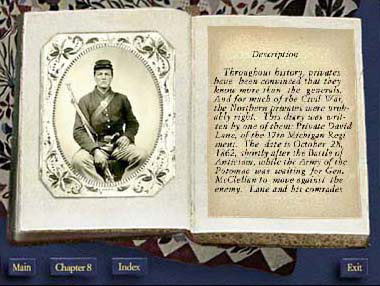 Description
Throughout history, privates
have been convinced that they
know more than the generals.
And for much of the Civil War,
the Northern privates were prob-
ably right. This diary was writ-
ten by one of them: Private David
Lane, of the 17th Michigan Regi
ment. The date is October 25,
1862, shortly after the Battle of
Antietam, while the Army of the
Potomac was waiting for Gen.
McClellan to move against the
enemy. Lane and his comrades
Main
Chapter 8
Index
Exit